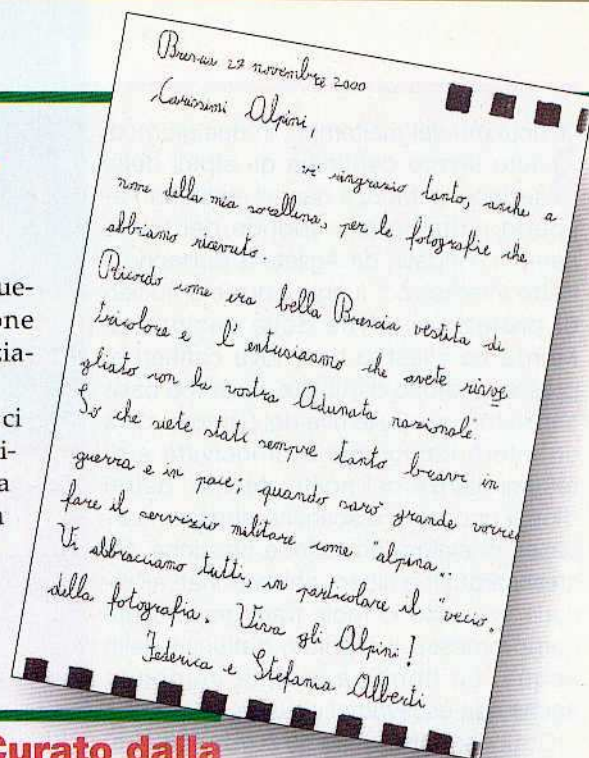 Brescia 27 novembre 2000
Carissimi Alpini
vi ringrazio tanto, anche a
nome della mia sorellina, per le fotografie che
abbiamo ricevuto.
Ricordo come era bella Brescia vestita di
tricolore e l'entusiasmo che avete risve
gliato con la vostra Adunata nazionale".
So che siete stati sempre tanto bravi in
guerra e in pace; quando sarò grande vorrei
fare il servizio militare come "alpina".
Vi abbracciamo tutti, in particolare il "vecio"
della fotografia. Viva gli Alpini!
Federica e Stefania Alberti
ue-
one
zia-
ci
i-
a
Curato dalla